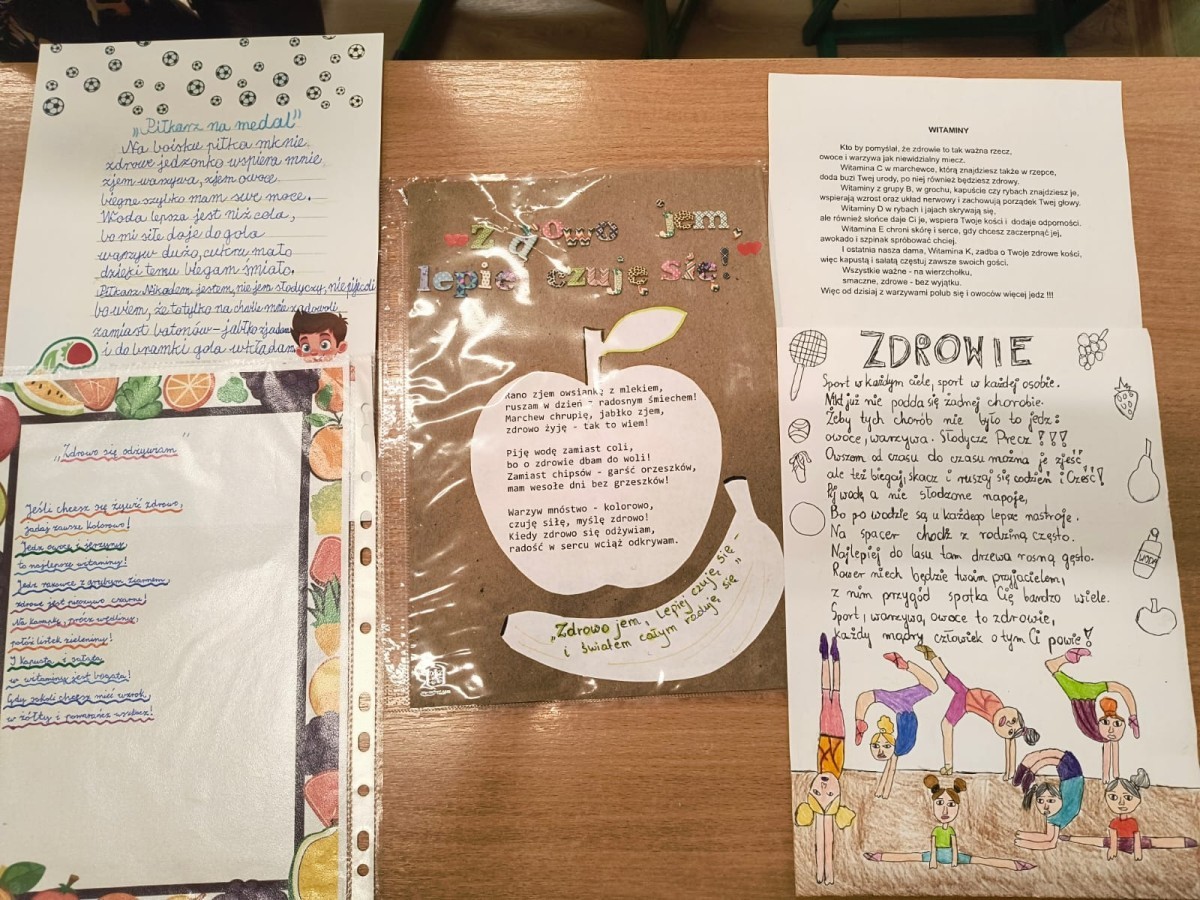 „Piłkarz na medal"
Na boisku piłka mknie
zdrowe jedzonko wspiera mnie
zjem warzywa, zjem owoce
biegnę szybko mam swe moce.
Woda lepsza jest niż cola,
bo mi siłę daje do gola
warzyw dużo, cukru mało
dzięki temu biegam śmiało.
Piłkarz Nikodem jestem, nie jem słodyczy, nie piję coli
bo wiem, że to tylko na chwilę mnie zadowoli
zamiast batonów - jabłko zjadam
i do bramki gola wkładam
„Zdrowo się odżywiam"
Jeśli chcesz się żywić zdrowo,
jadaj zawsze kolorowo!
Jedz owoce i warzywa
to najlepsze witaminy!
Jedz razowce z grubym ziarnem
zdrowe jest pieczywo czarne!
Na kanapkę, prócz wędliny,
połóż listek zieleniny!
I kapusta i sałata
w witaminy jest bogata!
Gdy sokoli chcesz mieć wzrok,
w żółtky i pomarańcz
„Zdrowo jem,
lepie czuję się!"
Rano zjem owsiankę z mlekiem,
ruszam w dzień - radosnym śmiechem!
Marchew chrupię, jabłko zjem,
zdrowo żyję - tak to wiem!
Piję wodę zamiast coli,
bo o zdrowie dbam do woli!
Zamiast chipsów - garść orzeszków,
mam wesołe dni bez grzeszków!
Warzyw mnóstwo - kolorowo,
czuję siłę, myślę zdrowo!
Kiedy zdrowo się odżywiam,
radość w sercu wciąż odkrywam.
„Zdrowo jem, lepiej czuję się -
i światem całym raduję się"
WITAMINY
Kto by pomyślał, że zdrowie to tak ważna rzecz,
owoce i warzywa jak niewidzialny miecz.
Witamina C w marchewce, którą znajdziesz także w rzepce,
doda buzi Twej urody, po niej również będziesz zdrowy.
Witaminy z grupy B, w grochu, kapuście czy rybach znajdziesz je,
wspierają wzrost oraz układ nerwowy i zachowują porządek Twej głowy.
Witaminy D w rybach i jajach skrywają się,
ale również słońce daje Ci je, wspiera Twoje kości i dodaje odporności.
Witamina E chroni skórę i serce, gdy chcesz zaczerpnąć jej,
awokado i szpinak spróbować chciej.
I ostatnia nasza dama, Witamina K, zadba o Twoje zdrowe kości,
więc kapustą i sałatą częstuj zawsze swoich gości.
Wszystkie ważne - na wierzchołku,
smaczne, zdrowe - bez wyjątku.
Więc od dzisiaj z warzywami polub się i owoców więcej jedz !!!
ZDROWIE
Sport w każdym ciele, sport w każdej osobie.
Nikt już nie podda się żadnej chorobie.
Żeby tych chorób nie było to jedz:
owoce, warzywa. Słodycze Precz!!!
Owszem od czasu do czasu można je zjeść,
ale też biegaj, skacz i ruszaj się codzień i Cześć!
Pij wodę a nie słodzone napoje,
Bo po wodzie są u każdego lepsze nastroje.
Na spacer chodź z rodziną często.
Najlepiej do lasu tam drzewa rosną gęsto.
Rower niech będzie twoim przyjacielem,
z nim przygód spotka Cię bardzo wiele.
Sport, warzywa, owoce to zdrowie,
każdy mądry człowiek o tym Ci powie!
WODA